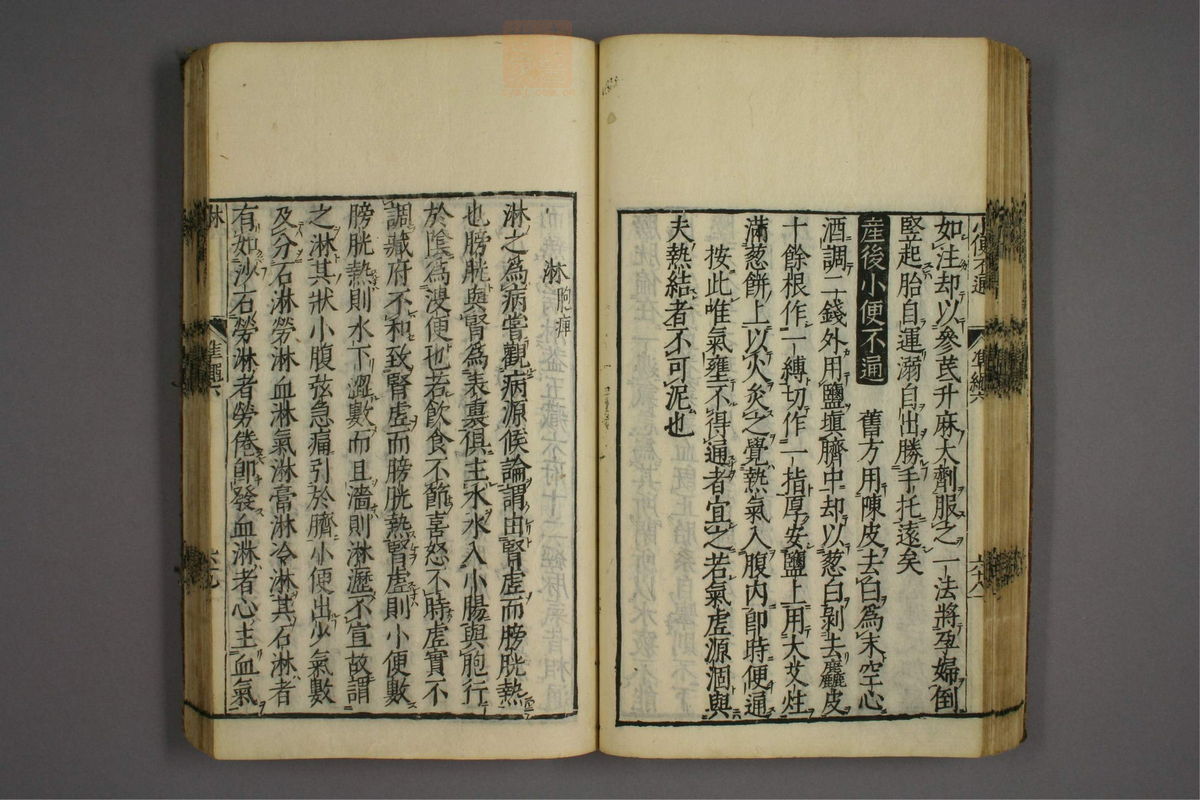 小便不通
如注却以參芪升麻大劑服之一法將孕婦倒
竪起胎自運溺自出勝手托遠矣
產後小便不通 舊方用陳皮去白爲末空心
酒調二錢外用鹽塡臍中却以葱白剥去麤皮
十餘根作一縛切作一指厚安鹽上用大艾炷
滿葱餅上以火灸之覺熱氣入腹內卽時便通
按此唯氣壅不得通者宜之若氣虛源涸與
夫熱結者不可泥也
淋 胞痺
淋之爲病嘗觀病源候論謂由腎虛而膀胱熱
也膀胱與腎爲表裏俱主水水入小腸與胞行
於陰爲溲便也若飲食不節喜怒不時虛實不
調藏府不和致腎虛而膀胱熱腎虛則小便數
膀胱熱則水下澀數而且濇則淋瀝不宣故謂
之淋其狀小腹弦急痛引於臍小便出少氣數
及分石淋勞淋血淋氣淋膏淋冷淋其石淋者
有如沙石勞淋者勞倦卽發血淋者心主血氣
淋 準繩六